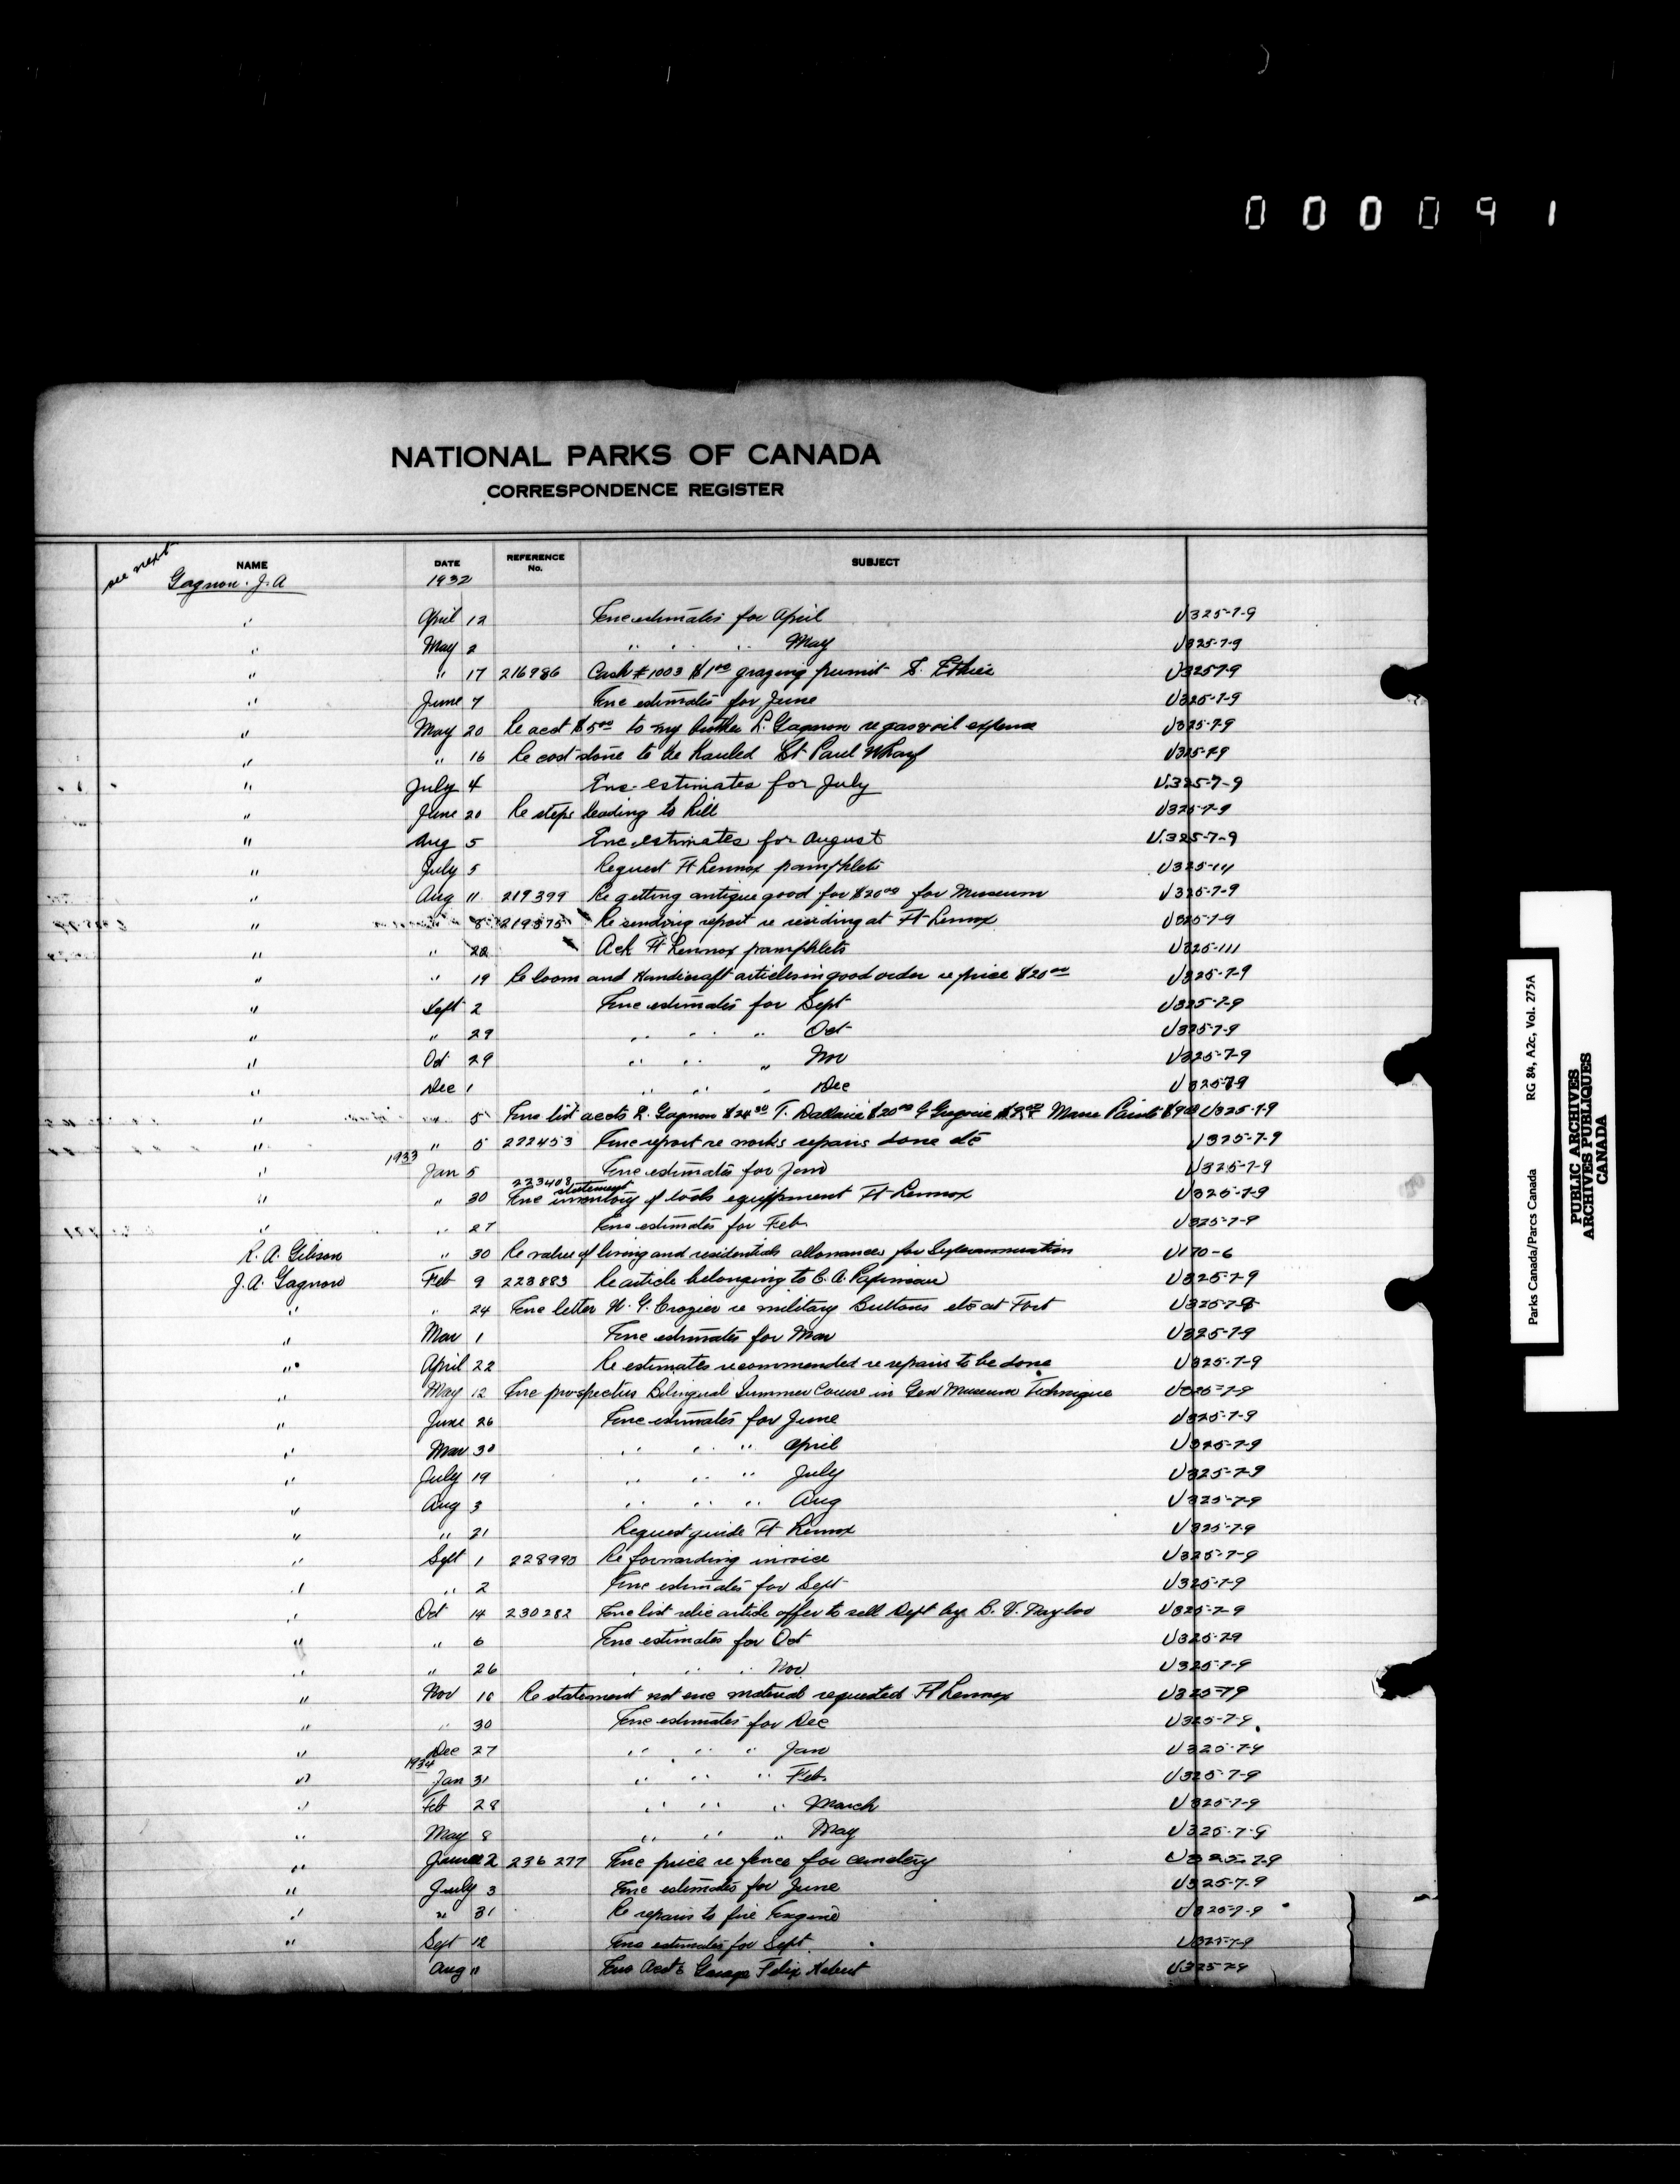 000091
NATIONAL PARKS OF CANADA
CORRESPONDENCE REGISTER
see next
NAME DATE REFERENCE No. SUBJECT
Gagnon. J. A 1932
" April 12 Enc estimates for April U325-7-9
" May 2 " " " May U325-7-9
" " 17 216986 Cash #1003 $1.00 grazing permit S. Ethier U325-7-9
" June 7 Enc estimates for June U325-7-9
" May 20 Re acct $5.00 to my brother L. Gagnon re gas & oil expense U325-7-9
" " 16 Re cost stone to be hauled St Paul Wharf U325-7-9
" July 4 Enc. estimates for July U.325-7-9
" June 20 Re steps leading to hill U325-7-9
" Aug 5 Enc estimates for August U.325-7-9
" July 5 Request Ft Lennox pamphlets U325-111
" Aug 11 219399 Re getting antique good for $20.00 for Museum U325-7-9
" 8 219575 Re sending report re residing at Ft Lennox U325-7-9
" " 22 Ack Ft Lennox pamphlets U325-111
" " 19 Re loom and Handicraft articles in good order re price $20.00 U325-7-9
" Sept 2 Enc estimates for Sept U325-7-9
" " 29 " " " Oct U325-7-9
" Oct 29 " " " Nov U325-7-9
" Dec 1 " " " Dec U325-7-9
" " 5 Enc list accts L. Gagnon T. Dallaire $20.00 G Gregoire U325-7-9
" " 5 222453 Enc report re works repairs done etc U325-7-9
1933
" Jan 5 Enc estimates for Jan U325-7-9
223408 statement
" " 30 Enc inventory of tools equippment Ft Lennox U325-7-9
" " 27 Enc estimates for Feb U325-7-9
R. A. Gibson " 30 Re value of living and residentials allowances for Superannuation U170-6
J. A. Gagnon Feb 9 223883 Re article belonging to C. A. Papineau U325-7-9
" " 24 Enc letter H. G. Crozier re military Buttons etc at Fort U325-7-9
" Mar 1 Enc estimates for Mar U325-7-9
" April 22 Re estimates recommended re repairs to be done U325-7-9
" May 12 Enc prospectus Bilingual Summer Course in Gen Museum Technique U325-7-9
" June 26 Enc estimates for June U325-7-9
" Mar 30 " " " April U325-7-9
" July 19 " " " July U325-7-9
" Aug 3 " " " Aug U325-7-9
" " 21 Request guide Ft Lennox U325-7-9
" Sept 1 228990 Re forwarding invoice U325-7-9
" " 2 Enc estimates for Sept U325-7-9
" Oct 14 230282 Enc list relic article offer to sell Dept by B. V. Naylor U325-7-9
" " 6 Enc estimates for Oct U325-7-9
" " 26 " " " Nov U325-7-9
" Nov 16 Re statement not enc material requested Ft Lennox U325-7-9
" " 30 Enc estimates for Dec U325-7-9
" Dec 27 " " " Jan U325-7-9
1934
" Jan 31 " " " Feb U325-7-9
" Feb 28 " " " March U325-7-9
" May 8 " " " May U325-7-9
" June 22 236277 Enc price re fence for cemetery U325-7-9
" July 3 Enc estimates for June U325-7-9
" " 31 Re repairs to fire Engine U325-7-9
" Sept 12 Enc estimates for Sept U325-7-9
Aug 11 Enc Accts Garage Felix Hebert U325-7-9
Parks Canada/Parcs Canada RG 84, A2c, Vol. 275A
PUBLIC ARCHIVES
ARCHIVES PUBLIQUES
CANADA